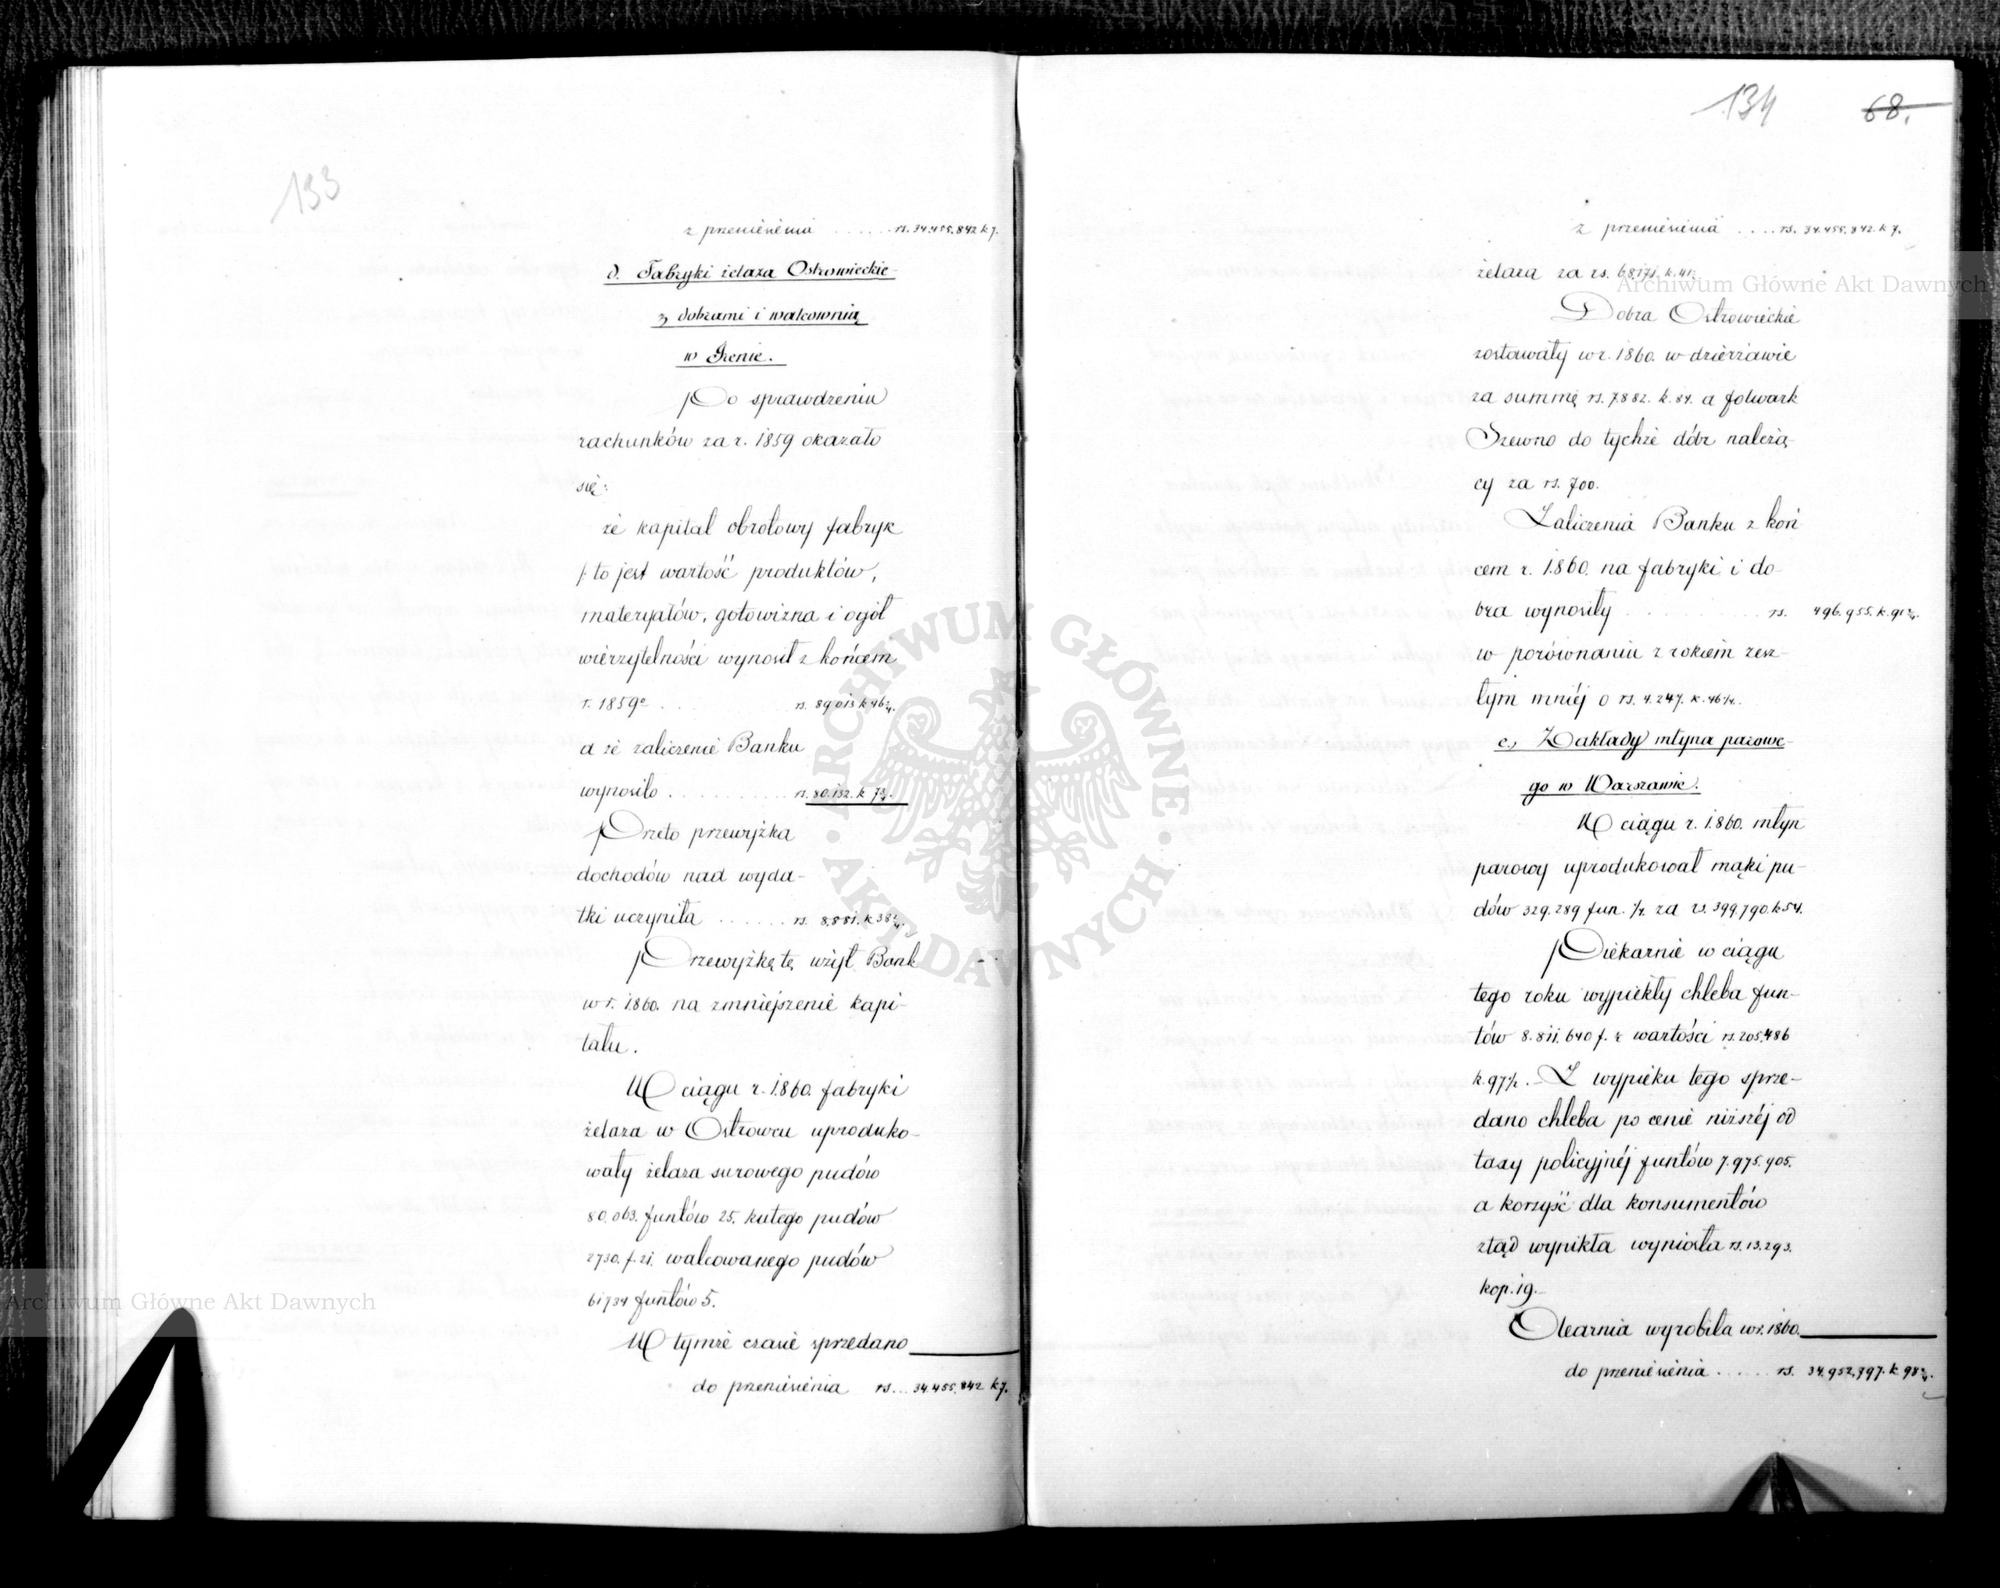 133
z przeniesienia ...... rs. 34.455.842 k 7.
d. Fabryki żelaza Ostrowieckie
z dobrami i walcownią
w Irenie.
Po sprawdzeniu
rachunków za r. 1859 okazało
się:
że kapitał obrotowy fabryk
/: to jest wartość produktów,
materyałów, gotowizna i ogół
wierzytelności wynosił z końcem
r. 1859o ......... rs. 89.013 k 46 2/4.
a że zaliczenie Banku
wynosiło ......... rs. 80.132. k 7 3/4.
Przeto przewyżka
dochodów nad wyda-
tki uczyniła ...... rs. 8.881. k 38 3/4.
Przewyżkę tę użył Bank
w r. 1860. na zmniejszenie kapi-
tału.
W ciągu r. 1860. fabryki
żelaza w Ostrowcu uproduko-
wały żelaza surowego pudów
80.063. funtów 25. kutego pudów
2730. f. 21. walcowanego pudów
61734 funtów 5.
W tymże czasie sprzedano
do przeniesienia rs... 34.455.842 k 7.
134 68.
z przeniesienia .... rs. 34.455.842. k 7.
żelaza za rs. 68171. k. 41.
Dobra Ostrowieckie
zostawały w r. 1860. w dzierżawie
za summę rs. 7.882. k. 84. a folwark
Szewno do tychże dóbr należą-
cy za rs. 700.
Zaliczenia Banku z koń
cem r. 1860. na fabryki i do-
bra wynosiły ............ rs. 496.955. k. 91 2/4.
w porównaniu z rokiem zesz-
łym mniéj o rs. 4.247. k. 46 1/4.
e., Zakłady młyna parowe-
go w Warszawie.
W ciągu r. 1860. młyn
parowy uprodukował mąki pu-
dów 329.289 fun. 1/4. za rs. 399.790. k 54.
Piekarnie w ciągu
tego roku wypiekły chleba fun-
tów 8.811.640 f. z wartości rs. 205.486
k. 97 1/2. – Z wypieku tego sprze-
dano chleba po cenie niższéj od
taxy policyjnéj funtów 7.975.905.
a korzyść dla konsumentów
ztąd wynikła wyniosła rs. 13.293.
kop. 19.–
Olearnia wyrobiła w r. 1860.
do przeniesienia ..... rs. 34.952.797. k 98 2/4.
Archiwum Główne Akt Dawnych
ARCHIWUM GŁÓWNE · AKT DAWNYCH ·
Archiwum Główne Akt Dawnych